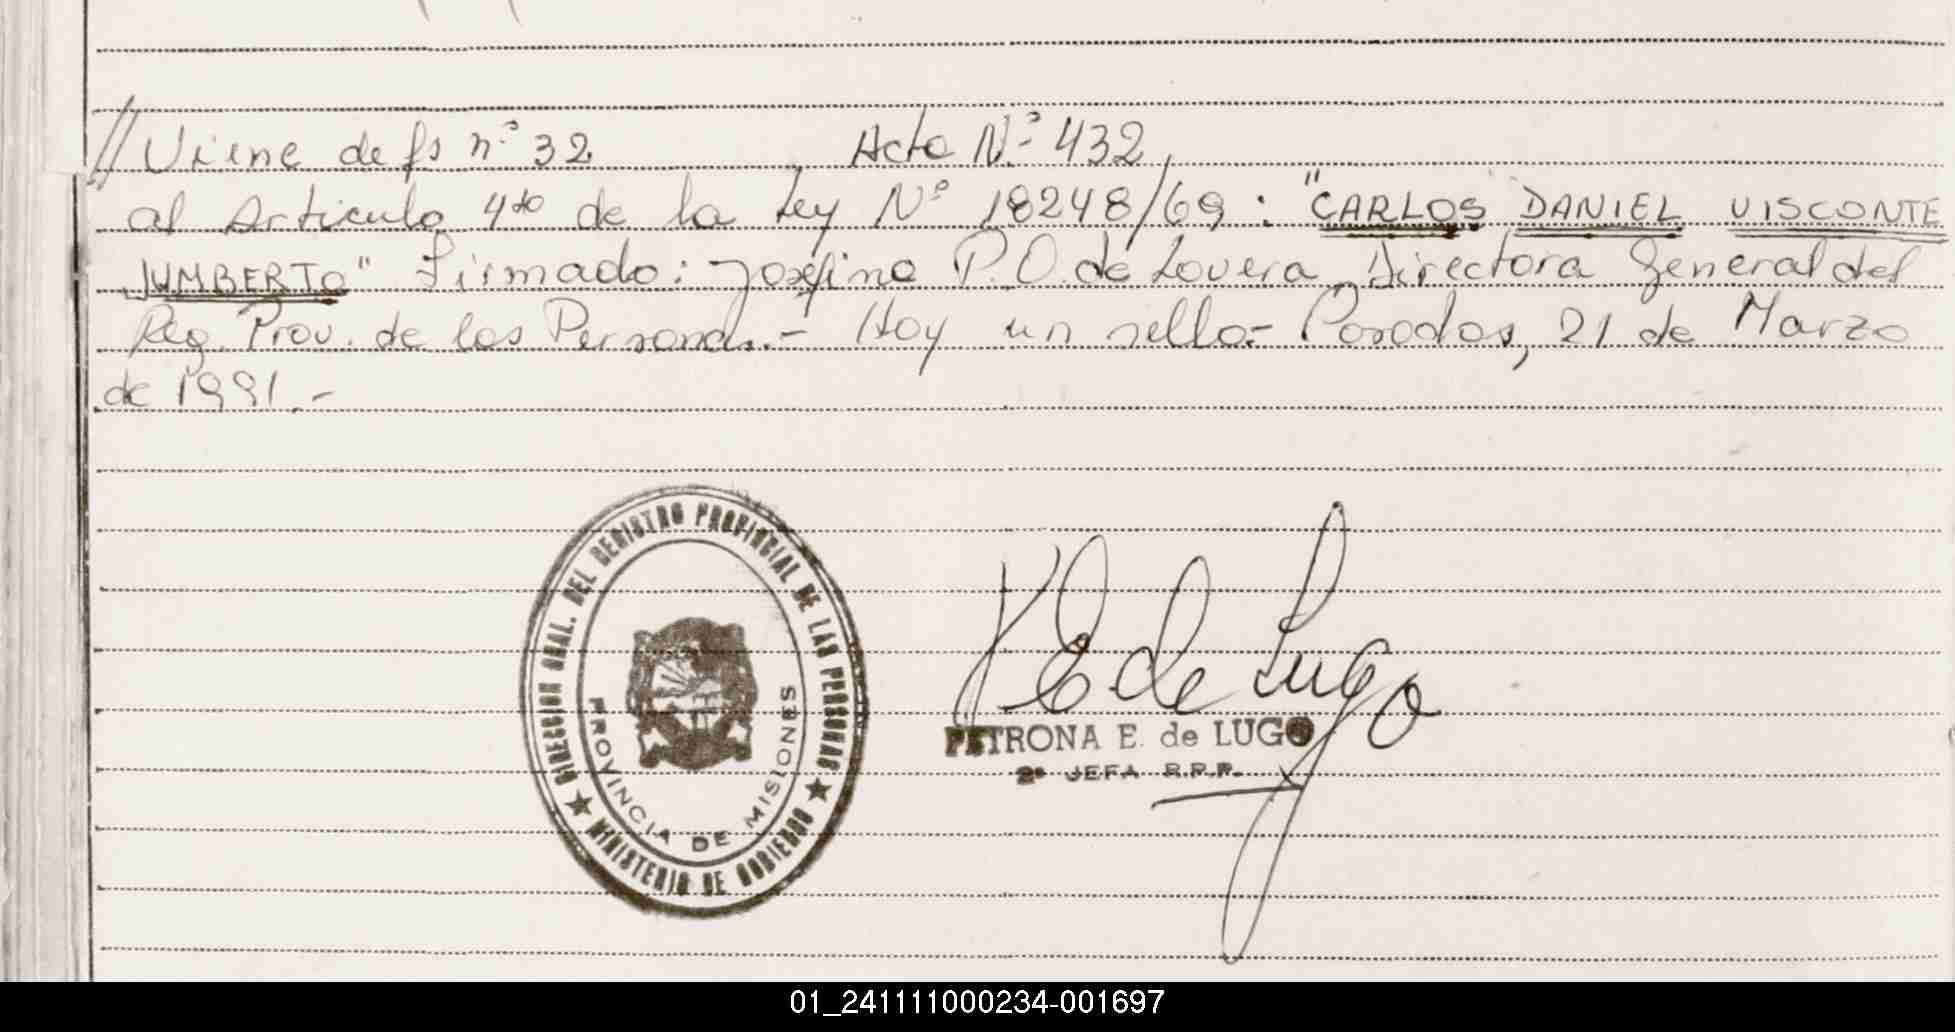 // Viene de fs n° 32 Acta N° 432
al Articulo 4to de la Ley N° 18248/69: "CARLOS DANIEL VISCONTE
JUMBERTO" Firmado: Josefina P.O. de Lovera, Directora General del
Reg. Prov. de las Personas.- Hay un sello.- Posadas, 21 de Marzo
de 1991.-
DIRECCION GRAL. DEL REGISTRO PROVINCIAL DE LAS PERSONAS
PROVINCIA DE MISIONES
★ MINISTERIO DE GOBIERNO ★
P E de Lugo
PETRONA E. de LUGO
2° JEFA R.P.P.
01_241111000234-001697